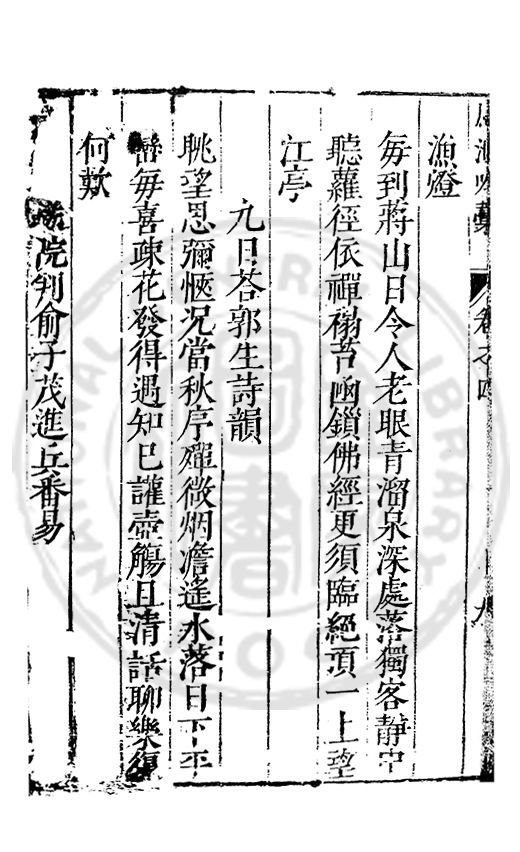 吹藁 卷之四 九
漁燈
每到蔣山日令人老眼青溜泉深處落獨客靜中
聽蘿徑依禪榻苔幽鎖佛經更須臨絕頂一上望
江亭
九日荅郭生詩韻
眺望思彌愜况當秋序殫微烟澹遥水落日下平
巒每喜疎花發得遇知已讙壺觴且清話聊樂復
何歎
院判俞子茂進兵番易